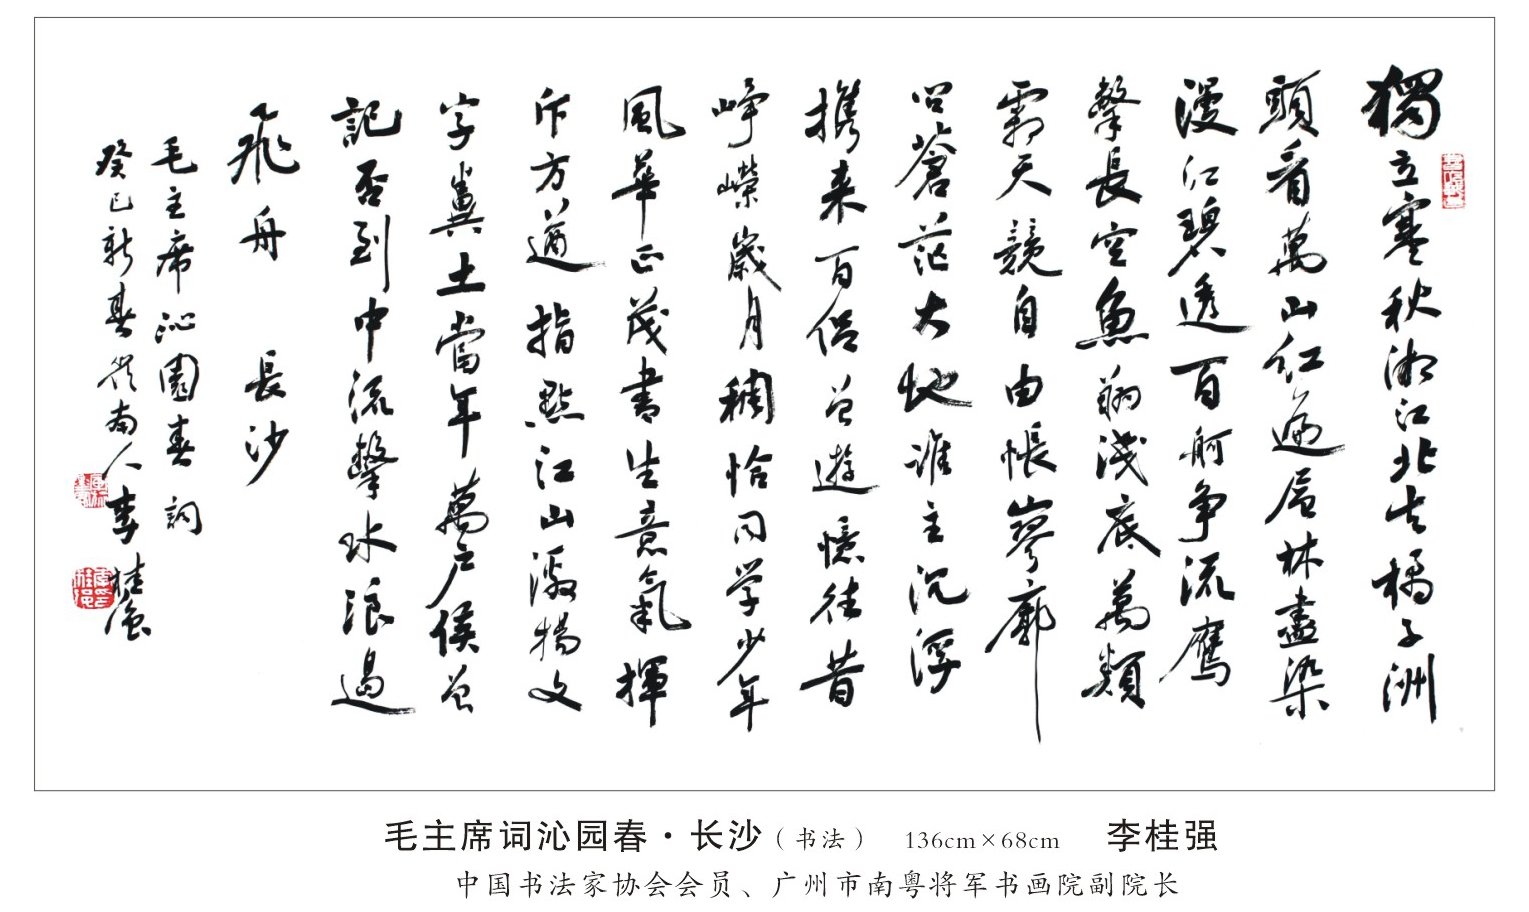 獨立寒秋湘江北去橘子洲
頭看萬山红遍層林盡染
漫江碧透百舸争流鹰
擊長空魚翔淺底萬類
霜天競自由悵寥廓
問蒼茫大地誰主沉浮
携来百侣曾遊憶往昔
崢嶸歲月稠恰同学少年
風華正茂書生意氣揮
斥方遒指點江山激揚文
字糞土當年萬户侯曾
記否到中流擊水浪遏
飛舟 長沙
毛主席沁園春詞
癸巳新春嶺南人李桂强
毛主席词沁园春·长沙（书法） 136cm×68cm 李桂强
中国书法家协会会员、广州市南粤将军书画院副院长